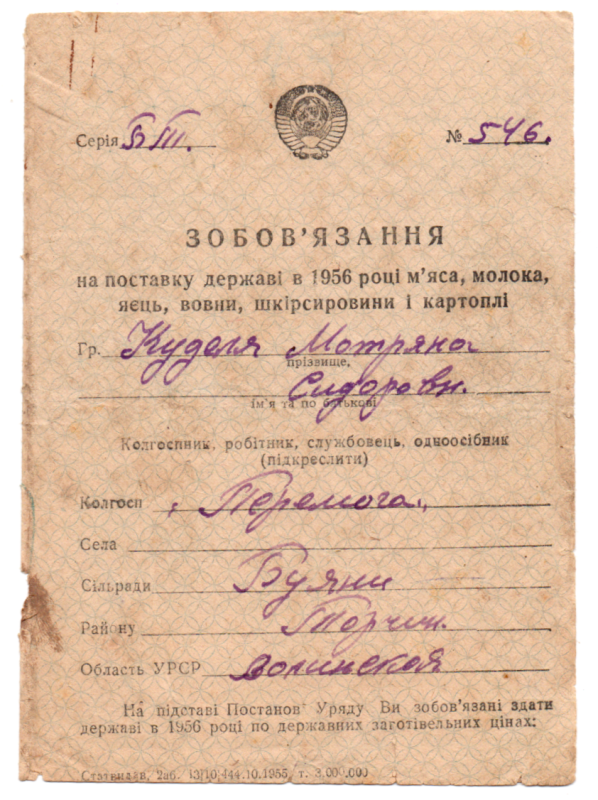 Серія БТ. № 546.
ЗОБОВ'ЯЗАННЯ
на поставку державі в 1956 році м'яса, молока,
яєць, вовни, шкірсировини і картоплі
Гр. Куделя Мотряна
прізвище,
Сидоровн.
ім'я та по батькові
Колгоспник, робітник, службовець, одноосібник
(підкреслити)
Колгосп „Перемога„
Села
Сільради Буяни
Району Торчин.
Область УРСР Волинской
На підставі Постанов Уряду Ви зобов'язані здати
державі в 1956 році по державних заготівельних цінах:
1955, т. 3.000.000